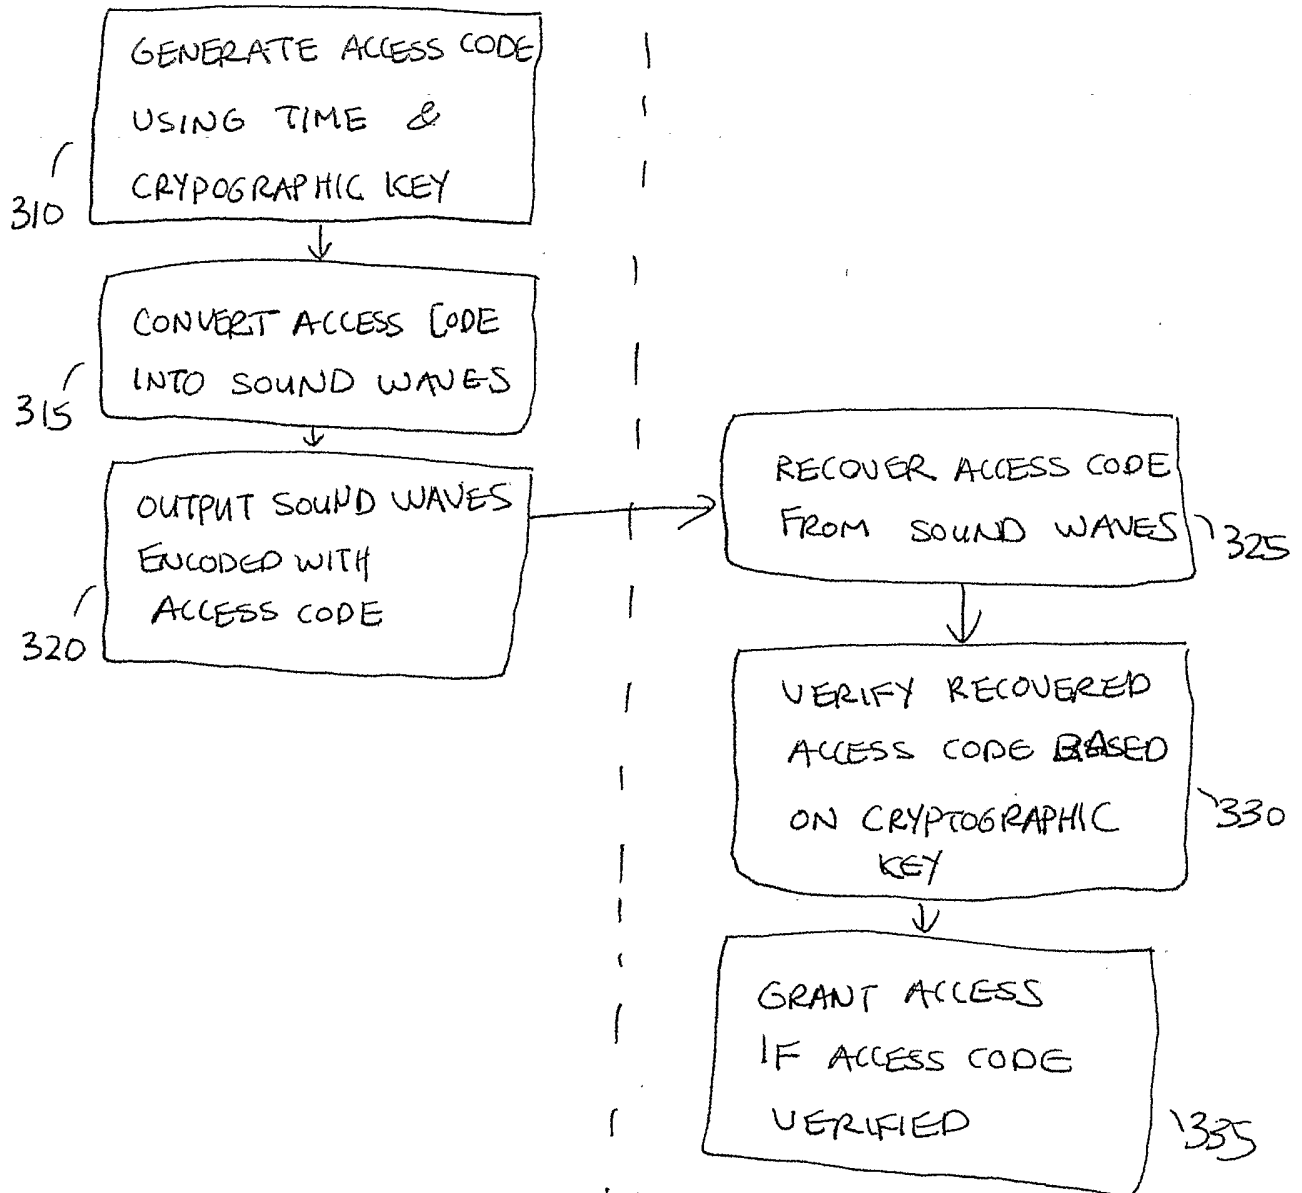 GENERATE ACCESS CODE
USING TIME &
CRYPOGRAPHIC KEY
310
CONVERT ACCESS CODE
INTO SOUND WAVES
315
OUTPUT SOUND WAVES
ENCODED WITH
ACCESS CODE
320
RECOVER ACCESS CODE
FROM SOUND WAVES
325
VERIFY RECOVERED
ACCESS CODE BASED
ON CRYPTOGRAPHIC
KEY
330
GRANT ACCESS
IF ACCESS CODE
VERIFIED
335